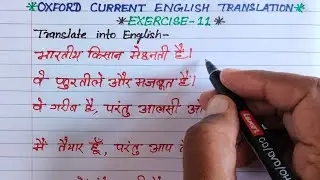 *OXFORD CURRENT ENGLISH TRANSLATION*
*EXERCISE-11*
Translate into English-
भारतीय किसान मेहनती हैं।
वे फुरतीले और मजबूत हैं।
वे गरीब है, परंतु आलसी
मैं तैयार हूँ, परंतु आप
CD/DVD/OH